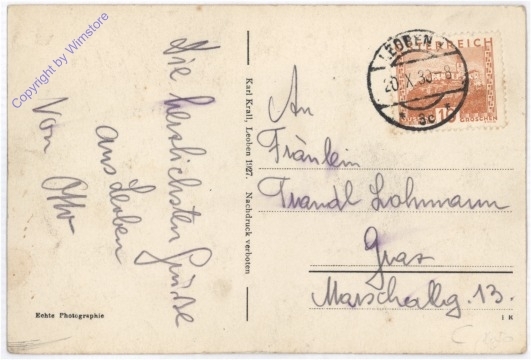 Copyright by Wimstore
Die herzlichsten Grüße
aus Leoben
Von Otto
Echte Photographie
Karl Krall, Leoben 1927. Nachdruck verboten
LEOBEN
20.X.30
* 3c *
ÖSTERREICH
16 GROSCHEN
An
Fräulein
Trandl Lohmann
Graz
Marschallg. 13.
1 R